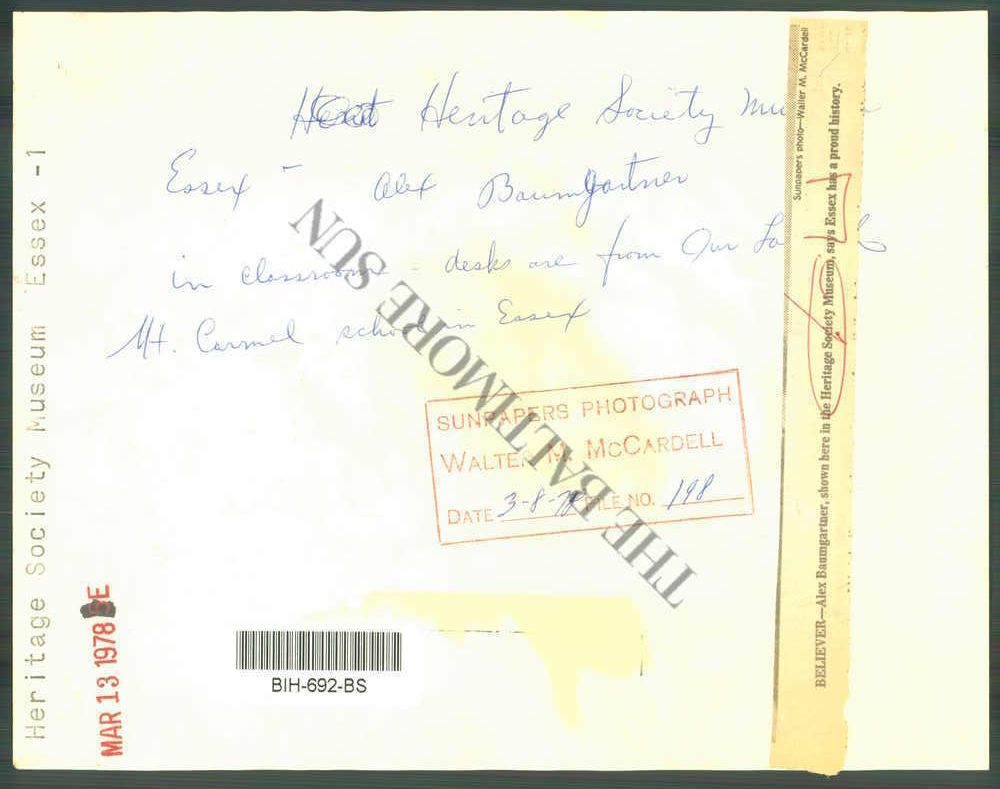 Heritage Society Mu
Essex - Alex Baumgartner
in classroom - desks are from Our La
Mt. Carmel school in Essex
SUNPAPERS PHOTOGRAPH
WALTER M. McCARDELL
DATE 3-8-78 FILE NO. 198
THE BALTIMORE SUN
BIH-692-BS
Heritage Society Museum Essex -1
MAR 13 1978 E
Sunpapers photo—Walter M. McCardell
BELIEVER—Alex Baumgartner, shown here in the Heritage Society Museum, says Essex has a proud history.